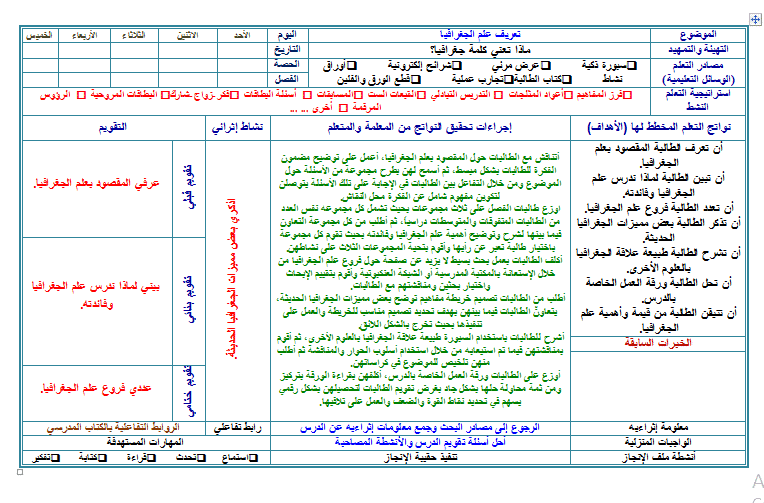 الموضوع تعريف علم الجغرافيا اليوم الأحد الاثنين الثلاثاء الأربعاء الخميس
التهيئة والتمهيد ماذا تعني كلمة جغرافيا؟ التاريخ
مصادر التعلم (الوسائل التعليمية) □سبورة ذكية □عرض مرئي □شرائح إلكترونية □أوراق نشاط □كتاب الطالبة □تجارب عملية □قطع الورق والفلين الحصة
الفصل
استراتيجية التعلم النشط □فرز المفاهيم □أعواد المثلجات □التدريس التبادلي □القبعات الست □المسابقات □أسئلة البطاقات □فكر-زواج-شارك □البطاقات المروحية □الرؤوس
المرقمة □ أخرى ... ...
نواتج التعلم المخطط لها (الأهداف) إجراءات تحقيق النواتج من المعلمة والمتعلم نشاط إثرائي التقويم
أن تعرف الطالبة المقصود بعلم
الجغرافيا.
أن تبين الطالبة لماذا ندرس علم
الجغرافيا وفائدته.
أن تعدد الطالبة فروع علم الجغرافيا.
أن تذكر الطالبة بعض مميزات الجغرافيا
الحديثة.
أن تشرح الطالبة طبيعة علاقة الجغرافيا
بالعلوم الأخرى.
أن تحل الطالبة ورقة العمل الخاصة
بالدرس.
أن تتيقن الطالبة من قيمة وأهمية علم
الجغرافيا.
الخبرات السابقة
أتناقش مع الطالبات حول المقصود بعلم الجغرافيا، أعمل على توضيح مضمون
الفكرة للطالبات بشكل مبسط، ثم أسمح لهن بطرح مجموعه من الأسئلة حول
الموضوع ومن خلال التفاعل بين الطالبات في الإجابة على تلك الأسئلة يتوصلن
لتكوين مفهوم شامل عن الفكرة محل النقاش.
اوزع طالبات الفصل على ثلاث مجموعات بحيث تشمل كل مجموعه نفس العدد
من الطالبات المتفوقات والمتوسطات دراسياً، ثم أطلب من كل مجموعة التعاون
فيما بينها لشرح وتوضيح أهمية علم الجغرافيا وفائدته بحيث تقوم كل مجموعة
باختيار طالبة تعبر عن رأيها وأقوم بتحية المجموعات الثلاث على نشاطهن.
أكلف الطالبات بعمل بحث بسيط لا يزيد عن صفحة حول فروع علم الجغرافيا من
خلال الإستعانة بالمكتبة المدرسية أو الشبكة العنكبوتية وأقوم بتقييم الإبحاث
واختيار بحثين ومناقشتهم مع الطالبات.
أطلب من الطالبات تصميم خريطة مفاهيم توضح بعض مميزات الجغرافيا الحديثة،
يتعاون الطالبات فيما بينهن بهدف تحديد تصميم مناسب للخريطة والعمل على
تنفيذها بحيث تخرج بالشكل اللائق.
أشرح للطالبات باستخدام السبورة طبيعة علاقة الجغرافيا بالعلوم الأخرى، ثم أقوم
بمناقشتهن فيما تم استيعابه من خلال استخدام أسلوب الحوار والمناقشة ثم أطلب
منهن تلخيص للموضوع في كراساتهن.
أوزع على الطالبات ورقة العمل الخاصة بالدرس، أكلفهن بقراءة الورقة بتركيز
ومن ثمة محاولة حلها بشكل جاد بغرض تقويم الطالبات لتحصيلهن بشكل رقمي
يسهم في تحديد نقاط القوة والضعف والعمل على تلافيها.
اذكري بعض مميزات الجغرافيا الحديثة.
تقويم قبلي
عرفي المقصود بعلم الجغرافيا.
تقويم بنائي
بيني لماذا ندرس علم الجغرافيا
وفائدته.
تقويم ختامي
عددي فروع علم الجغرافيا.
معلومة إثرائيه الرجوع إلى مصادر البحث وجمع معلومات إثراءيه عن الدرس رابط تفاعلي الروابط التفاعلية بالكتاب المدرسي
الواجبات المنزلية أحل أسئلة تقويم الدرس والأنشطة المصاحبة المهارات المستهدفة
أنشطة ملف الإنجاز تنفيذ حقيبة الإنجاز □استماع □تحدث □قراءة □كتابة □تفكير